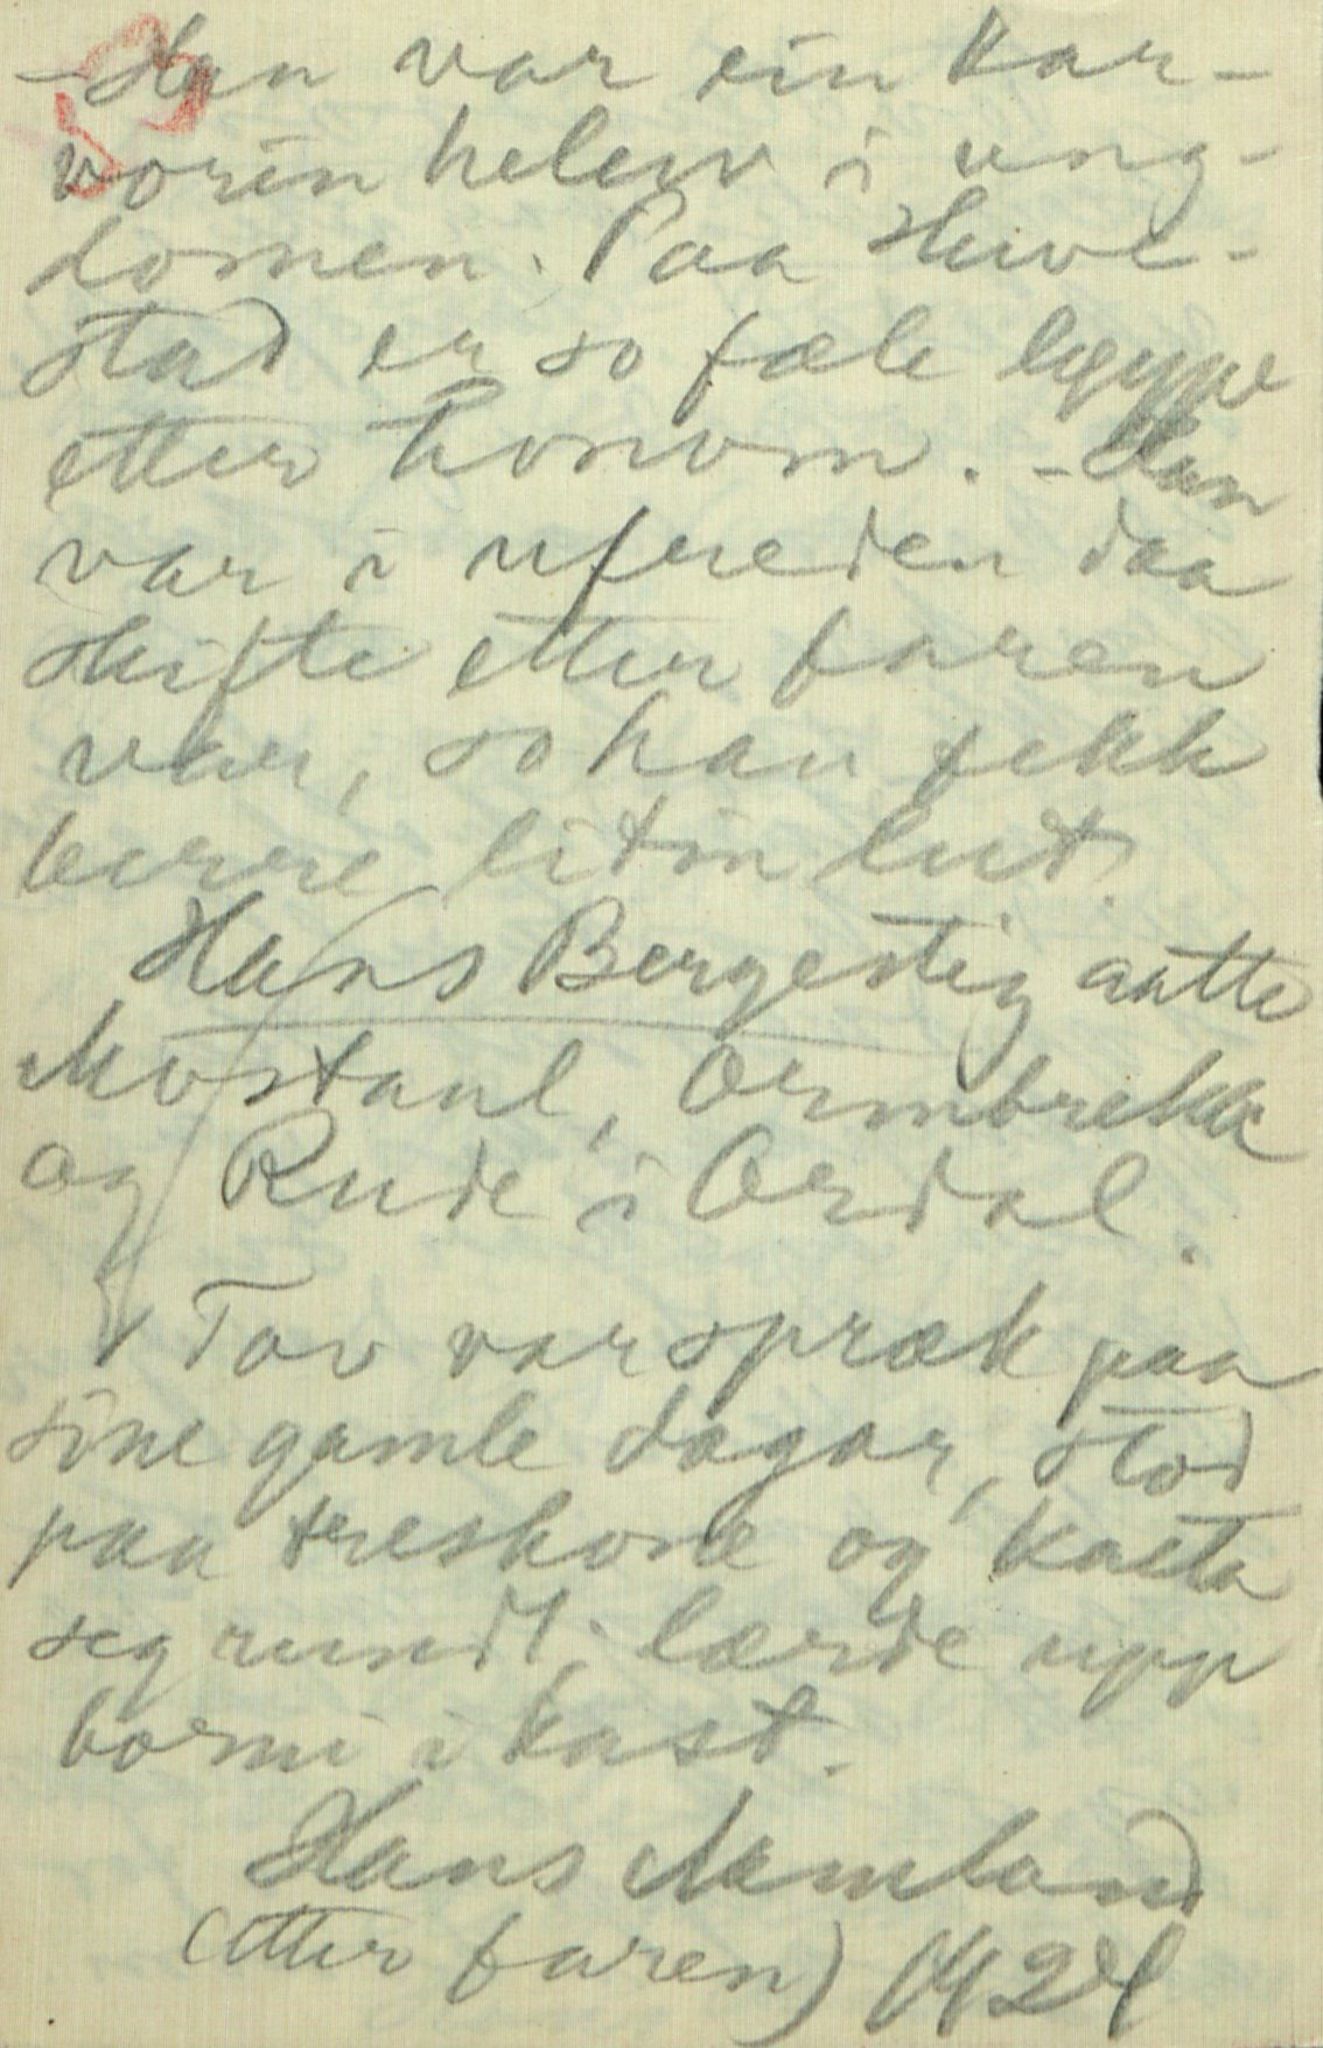 - Han var ein kar-
voren helew i ung-
domen. Paa Huve-
stad er so fæle
etter honom. - Han
var i ufreden daa
skifte etter faren
var, so han fekk
berre liten lut.
Hans Bergestig aatte
Møstaul, Ormbrekk
og Rude i Ordal.
Tov var spræk paa
sine gamle dagar, stod
paa treskone og kasta
seg rundt, lærde upp
borni i kast.
Hans Næmland
(etter faren) 1924